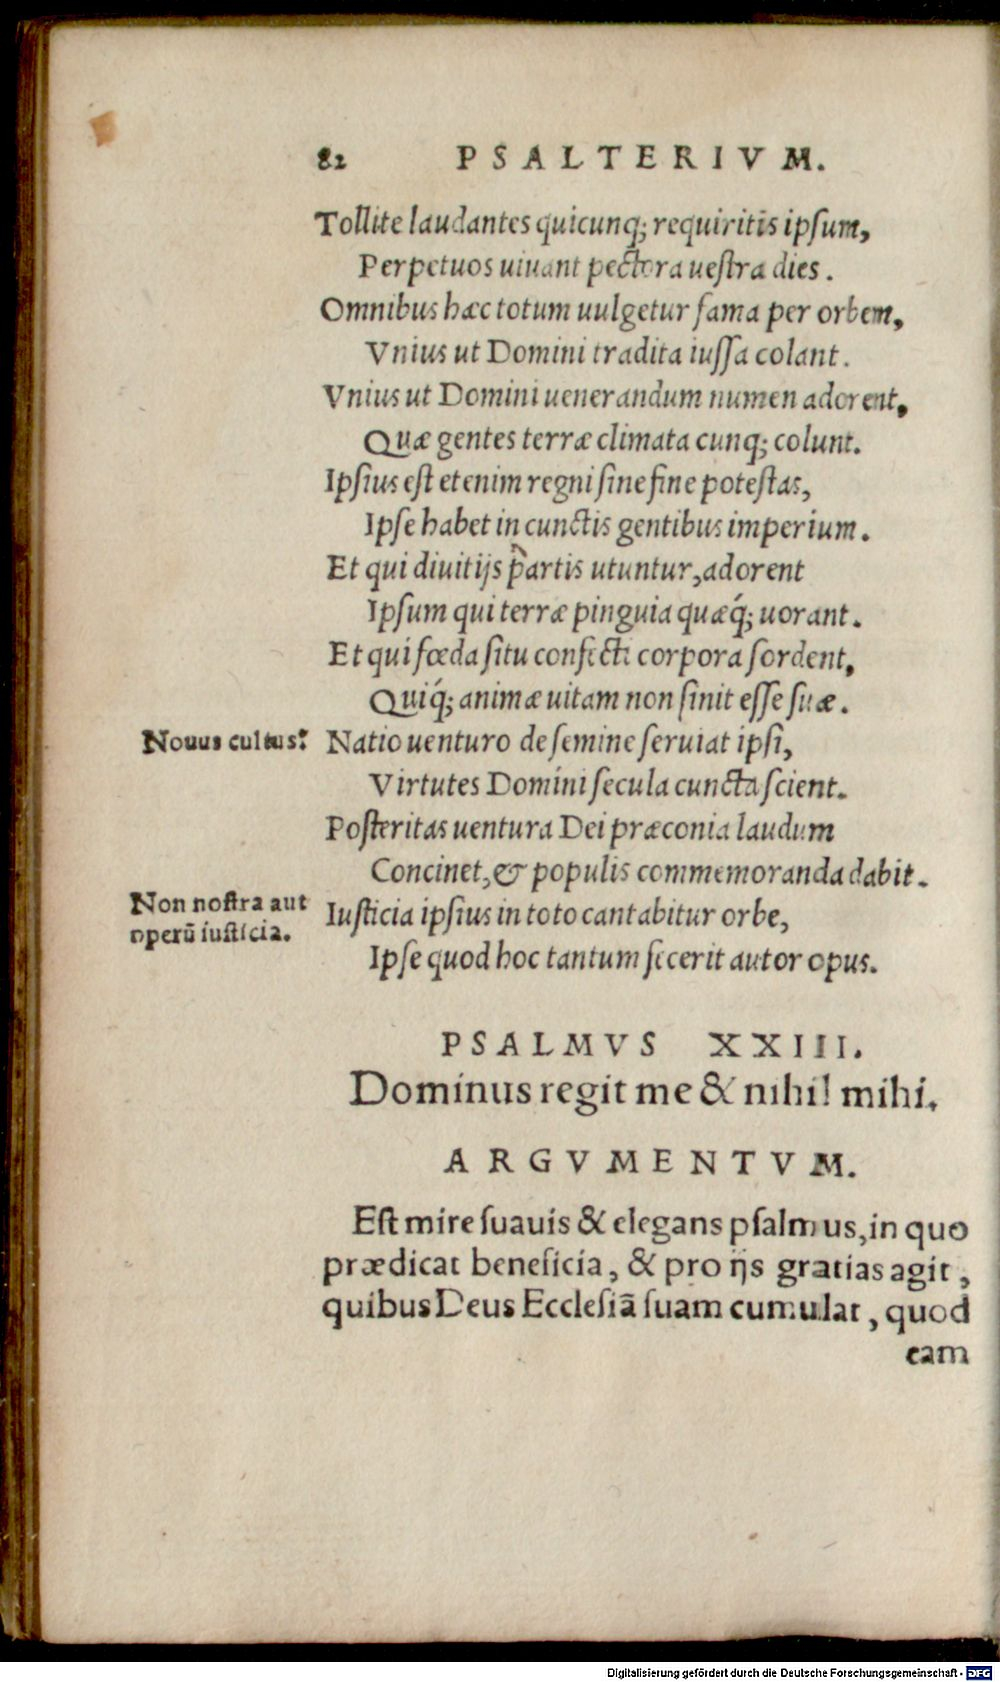 82 PSALTERIVM.
Tollite laudantes quicunq; requiritis ipſum,
Perpetuos uiuant pectora ueſtra dies.
Omnibus hæc totum uulgetur fama per orbem,
Vnius ut Domini tradita iuſſa colant.
Vnius ut Domini uenerandum numen adorent,
Quæ gentes terræ climata cunq; colunt.
Ipſius eſt etenim regni ſine fine poteſtas,
Ipſe habet in cunctis gentibus imperium.
Et qui diuitijs partis utuntur, adorent
Ipſum qui terræ pinguia quæq́; uorant.
Et qui fœda ſitu confecti corpora ſordent,
Quiq́; animæ uitam non ſinit eſſe ſuæ.
Nouus cultus. Natio uenturo de ſemine ſeruiat ipſi,
Virtutes Domini ſecula cuncta ſcient.
Poſteritas uentura Dei præconia laudum
Concinet, & populis commemoranda dabit.
Non noſtra aut
operū iuſticia.
Iuſticia ipſius in toto cantabitur orbe,
Ipſe quod hoc tantum fecerit autor opus.
PSALMVS XXIII.
Dominus regit me & nihil mihi.
ARGVMENTVM.
Eſt mire ſuauis & elegans pſalmus, in quo
prædicat beneficia, & pro ijs gratias agit,
quibus Deus Eccleſiā ſuam cumulat, quod
eam
Digitalisierung gefördert durch die Deutsche Forschungsgemeinschaft - DFG